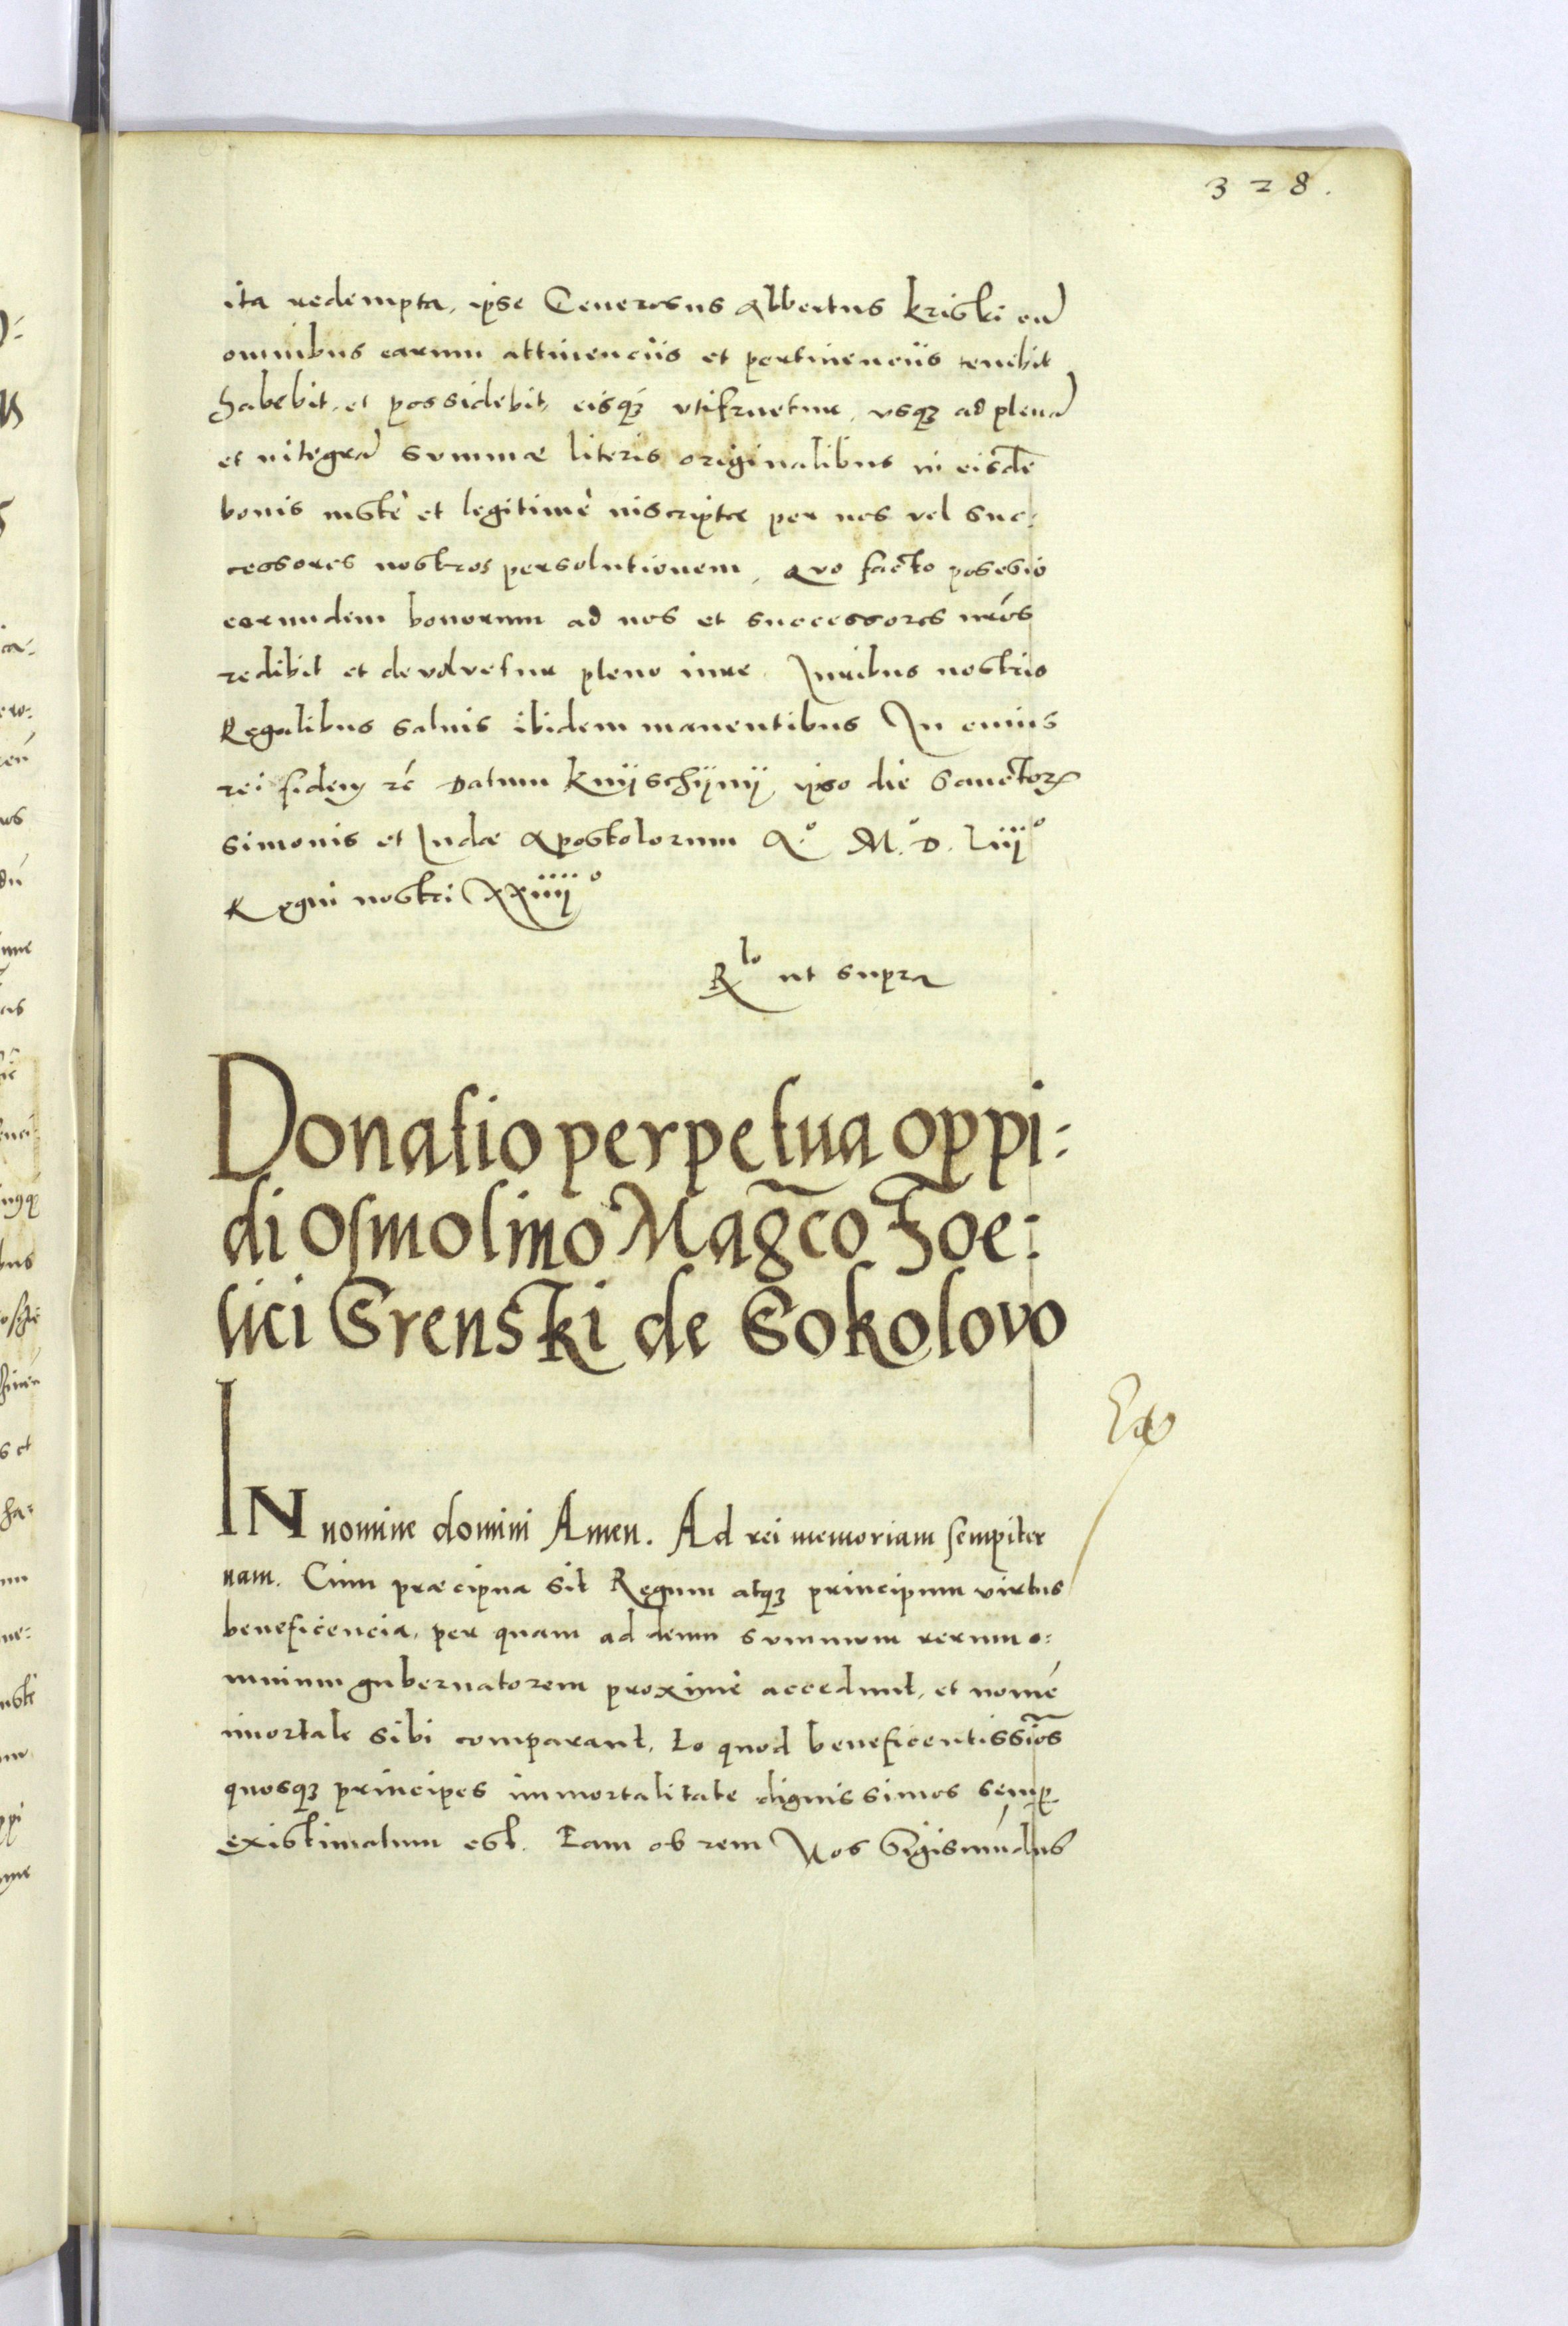 328.
ita redempta, ipse Generosus Albertus Kriski cũ
omnibus earum attinenciis et pertinenciis tenebit
habebit, et possidebit, eisq́ʒ utifruetur, usqʒ ad plenã
et integrã summae literis originalibus in eisdẽ
bonis iustè et legitimè inscriptae per nos vel suc:
cessores nostros persolutionem, Quo facto posesio
eorundem bonorum ad nos et successores nrós
redibit et devolvetur pleno iure. Iuribus nostris
Regalibus salvis ibidem manentibus In cuius
rei fidem ré Datum Knijschijnij ipso die Sanctorꝝ
Simonis et Iudae Apostolorum A.º M.º D. Liijº
Regni nostri XXiiijº
Rlo ut supra
Donatio perpetua oppi:
di Osmolino Magc̃o Foe:
lici Srenski de Sokolovo
IN nomine domini Amen. Ad rei memoriam sempiter
nam. Cum praecipua sit Regum atqʒ principum virtus
beneficencia, per quam ad deum summum rerum o:
mnium gubernatorem proximè accedunt, et nomẽ
imortale sibi comparant, Eo quod beneficentissiõs
quosqʒ principes immortalitate dignissimos semꝑ
existimatum est. Eam ob rem Nos Sigismũdus